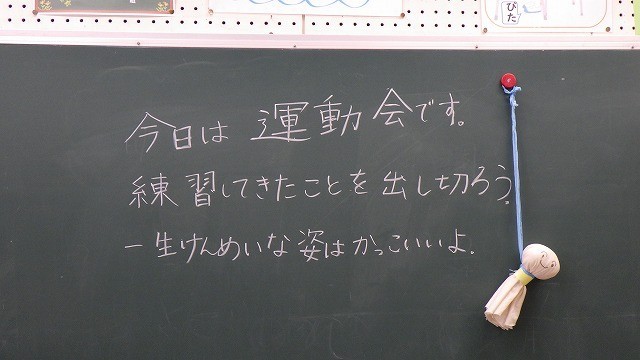 ぴた
今日は運動会です。
練習してきたことを出し切ろう。
一生けんめいな姿はかっこいいよ。